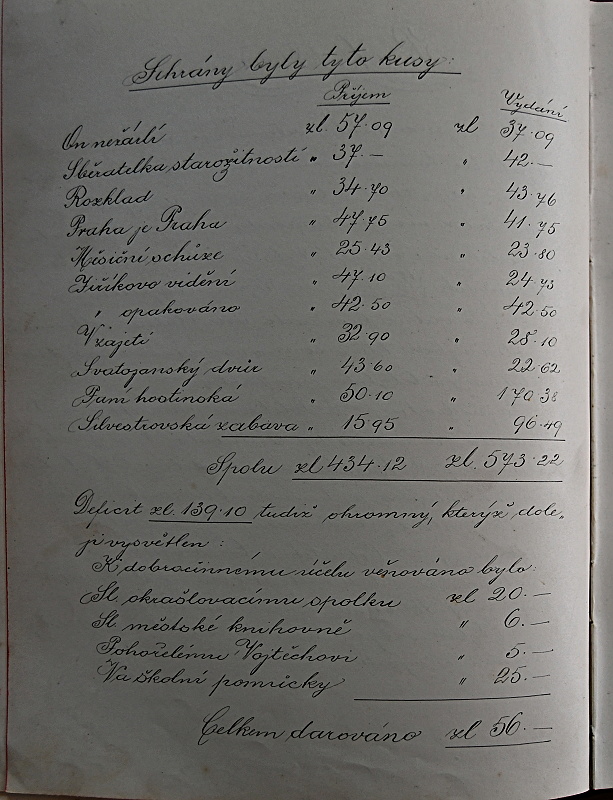 Sehrány byly tyto kusy:
Příjem Vydání
On nežárlí zl. 57.09 zl 37.09
Sběratelka starožitností " 37.— " 42.—
Rozklad " 34.70 " 43.76
Praha je Praha " 47.75 " 41.75
Měsiční schůze " 25.43 " 23.80
Jiříkovo vidění " 47.10 " 24.73
" opakováno " 42.50 " 42.50
V zájetí " 32.90 " 28.10
Svatojanský dvůr " 43.60 " 22.62
Paní hostinská " 50.10 " 170.38
Silvestrovská zábava " 15.95 " 96.49
Spolu zl 434.12 zl. 573.22
Deficit zl. 139.10 tudiž ohromný, kterýž dole„
ji vysvětlen:
K dobročinnému účelu věnováno bylo:
Sl. okrašlovacímu spolku zl 20.—
Sl městské knihovně " 6.—
Pohořelému Vojtěchovi " 5.—
Na školní pomůcky " 25.—
Celkem darováno zl 56.—